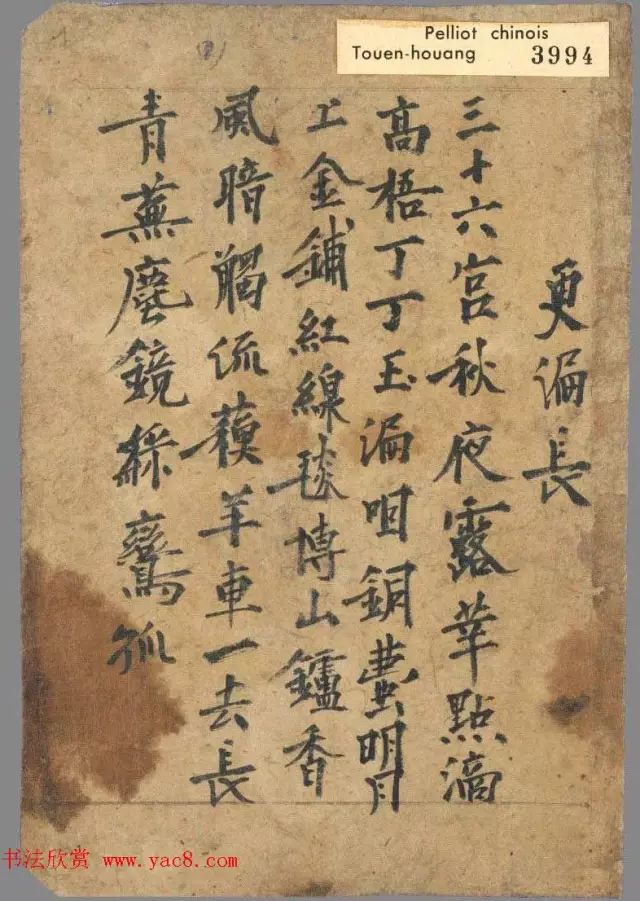 Pelliot chinois
Touen-houang 3994
更漏長
三十六宮秋夜露華點滴
高梧丁丁玉漏咽銅壺明月
上金鋪紅線毯博山鑪香
風暗觸流蘓羊車一去長
青蕪塵鏡綵鸞孤
书法欣赏 www.yac8.com